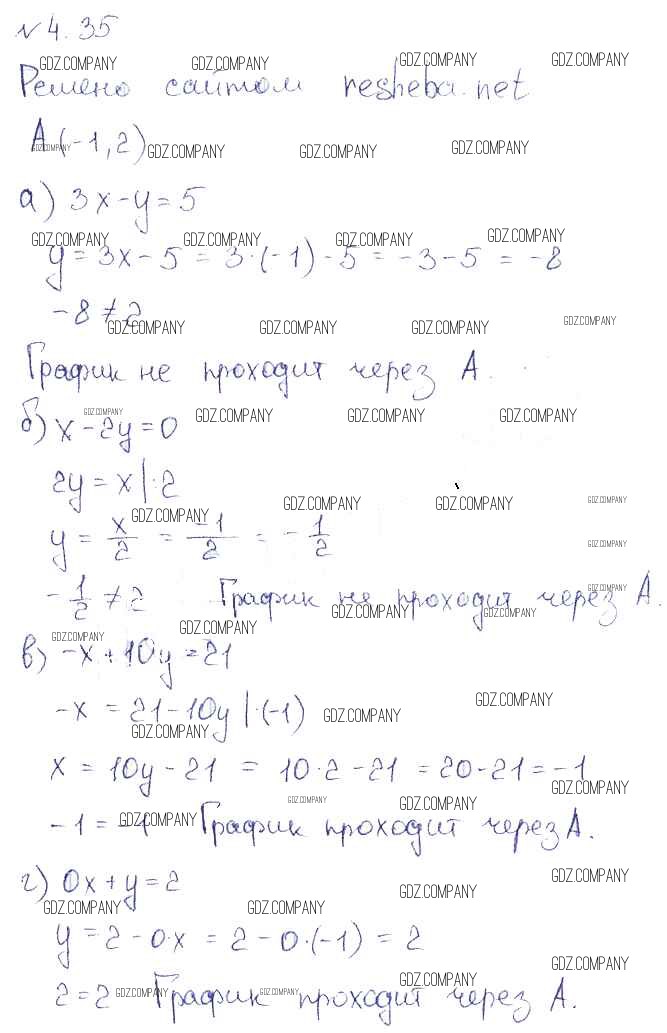 № 4.35
GDZ.COMPANY GDZ.COMPANY GDZ.COMPANY GDZ.COMPANY
Решено сайтом resheba.net
A (-1, 2)
GDZ.COMPANY GDZ.COMPANY GDZ.COMPANY GDZ.COMPANY
а) 3x - y = 5
GDZ.COMPANY GDZ.COMPANY GDZ.COMPANY GDZ.COMPANY
y = 3x - 5 = 3·(-1) - 5 = -3 - 5 = -8
-8 ≠ 2
GDZ.COMPANY GDZ.COMPANY GDZ.COMPANY GDZ.COMPANY
График не проходит через A.
GDZ.COMPANY GDZ.COMPANY GDZ.COMPANY GDZ.COMPANY
б) x - 2y = 0
2y = x |:2
GDZ.COMPANY GDZ.COMPANY GDZ.COMPANY GDZ.COMPANY
y = x/2 = -1/2 = -1/2
GDZ.COMPANY
-1/2 ≠ 2 График не проходит через A.
GDZ.COMPANY
GDZ.COMPANY GDZ.COMPANY
GDZ.COMPANY GDZ.COMPANY
в) -x + 10y = 21
-x = 21 - 10y |·(-1)
GDZ.COMPANY GDZ.COMPANY GDZ.COMPANY
x = 10y - 21 = 10·2 - 21 = 20 - 21 = -1
GDZ.COMPANY
GDZ.COMPANY GDZ.COMPANY GDZ.COMPANY
-1 = -1 График проходит через A.
г) 0x + y = 2
GDZ.COMPANY GDZ.COMPANY
GDZ.COMPANY GDZ.COMPANY
y = 2 - 0·x = 2 - 0·(-1) = 2
GDZ.COMPANY
2 = 2 График проходит через A.
GDZ.COMPANY GDZ.COMPANY GDZ.COMPANY